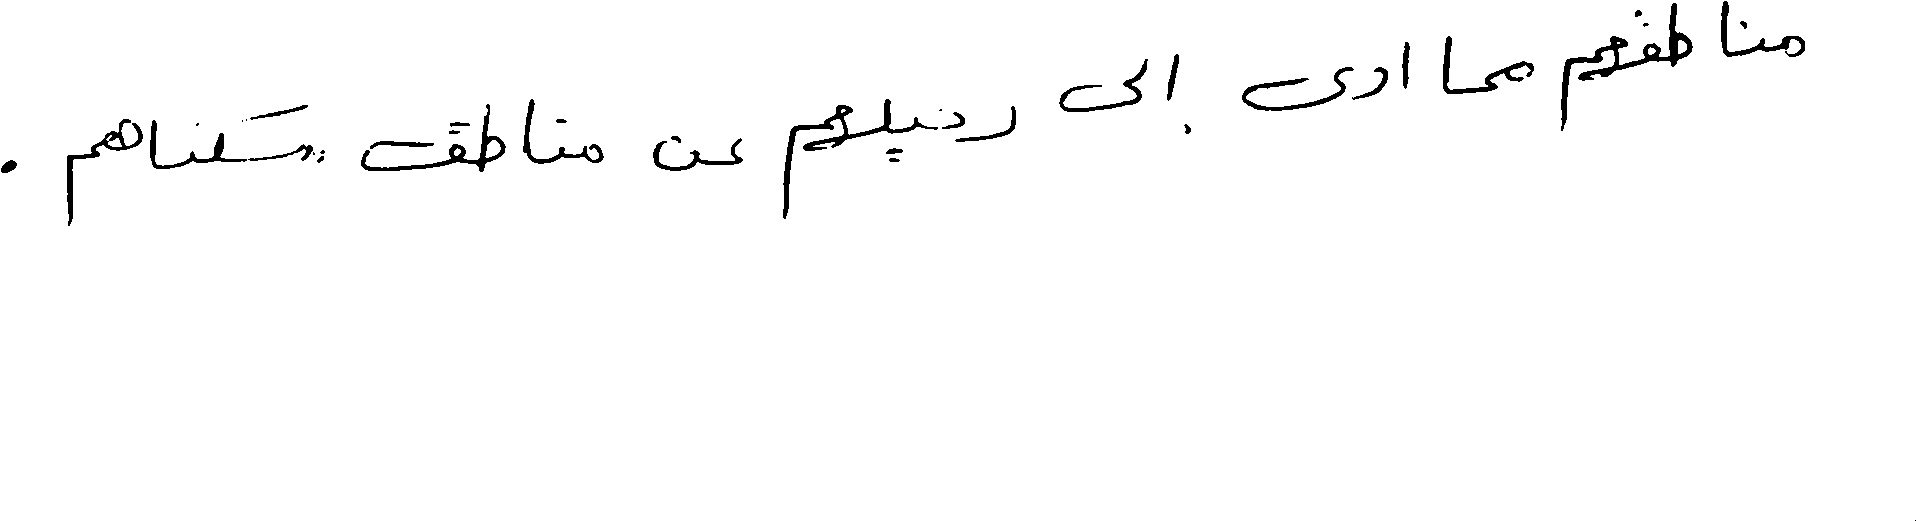 مناطقهم مما ادى إلى رحيلهم عن مناطق سكناهم .